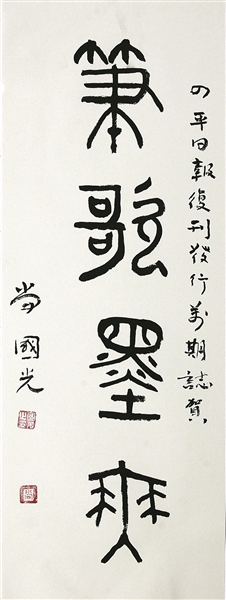 四平日報復刊發行萬期誌賀
筆歌墨舞
國光